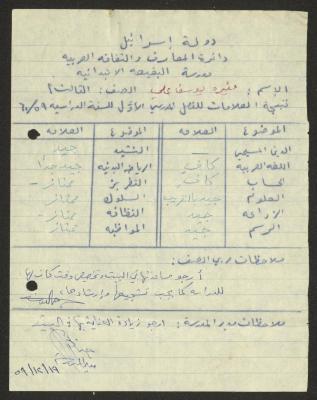 دولة إسرائيل
دائرة المعارف والثقافة العربية
مدرسة البقيعة الابتدائية
الإسم: منيره يوسف علي الصف: الثالث أ
نتيجة العلامات للفصل المدرسي الأول للسنة الدراسية ٦٠/٥٩
الموضوع العلامه الموضوع العلامه
الدين المسيحي — النشيد جيد
اللغة العربية كاف الرياضه البدنية جيد جدا
الحساب كاف التطريز ممتاز
العلوم جيد بالتقريب السلوك ممتاز
الزراعه جيد النظافه ممتاز
الرسم جيد المواظبه ممتاز
ملاحظات مربي الصف:
أرجو مساعدتها في البيت وتخصيص وقت كاف لها
للدراسه كما يجب تشجيعها وإرشادها.
ملاحظات مدير المدرسة: ارجو زيادة العناية بها في البيت
٥٩/١٢/١٩